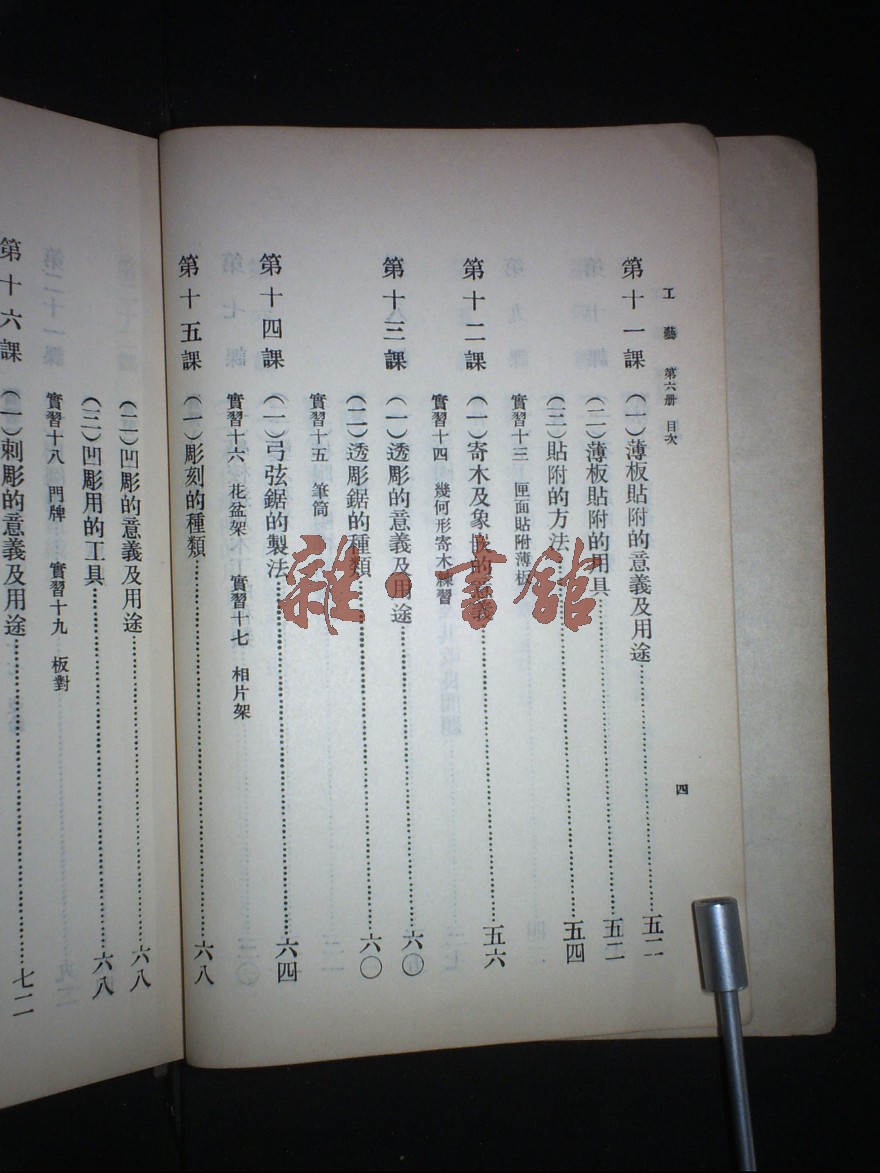 工藝 第六册 目次
四
第十一課 (一)薄板貼附的意義及用途……五二
(二)薄板貼附的用具……五二
(三)貼附的方法……五四
實習十三 匣面貼附薄板
第十二課 (一)寄木及象嵌的意義……五六
實習十四 幾何形寄木練習
第十三課 (一)透彫的意義及用途……六〇
(二)透彫鋸的種類……六〇
實習十五 筆筒
第十四課 (一)弓弦鋸的製法……六四
實習十六 花盆架 實習十七 相片架
第十五課 (一)彫刻的種類……六八
(二)凹彫的意義及用途……六八
(三)凹彫用的工具……六八
實習十八 門牌 實習十九 板對
第十六課 (一)刺彫的意義及用途……七二
雜·書館